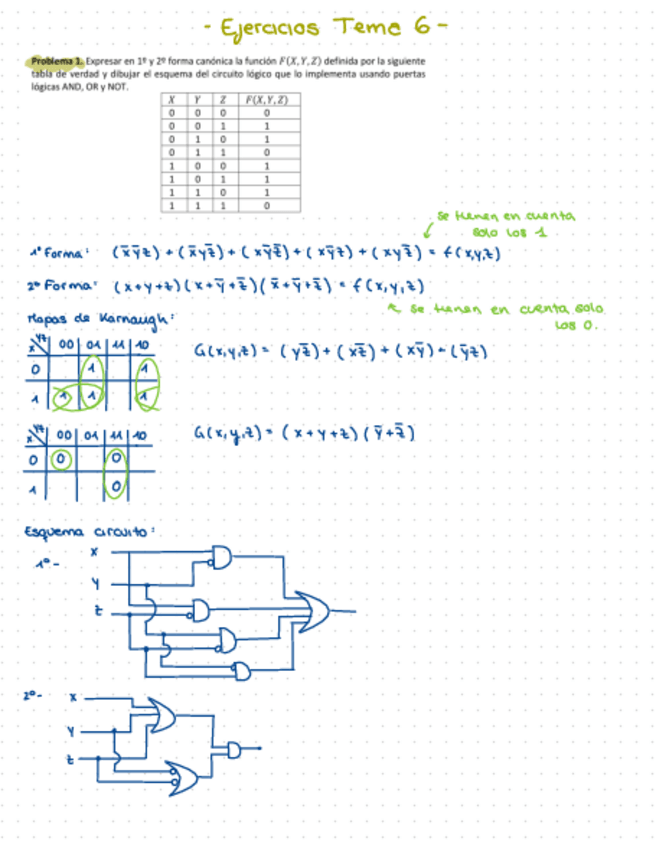 - Ejercicios Tema 6 -
Problema 1. Expresar en 1º y 2º forma canónica la función F(X,Y,Z) definida por la siguiente
tabla de verdad y dibujar el esquema del circuito lógico que lo implementa usando puertas
lógicas AND, OR y NOT.
X Y Z F(X,Y,Z)
0 0 0 0
0 0 1 1
0 1 0 1
0 1 1 0
1 0 0 1
1 0 1 1
1 1 0 1
1 1 1 0
se tienen en cuenta
solo los 1
1ª Forma: (x̄ȳz) + (x̄yz̄) + (xȳz̄) + (xȳz) + (xyz̄) = f(x,y,z)
2ª Forma: (x+y+z)(x+ȳ+z̄)(x̄+ȳ+z̄) = f(x,y,z)
se tienen en cuenta solo
los 0.
Mapas de Karnaugh:
x yz 00 01 11 10
0 1 1
1 1 1 1
G(x,y,z) = (yz̄) + (xz̄) + (xȳ) + (ȳz)
x yz 00 01 11 10
0 0 0
1 0
G(x,y,z) = (x+y+z)(ȳ+z̄)
Esquema circuito:
1º -
x
y
z
2º -
x
y
z